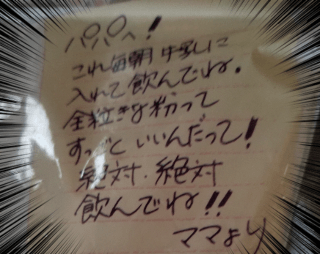 パパへ!
これ毎朝牛乳に
入れて飲んでね。
全粒きな粉って
すっごくいいんだって!
絶対、絶対
飲んでね!!
ママより